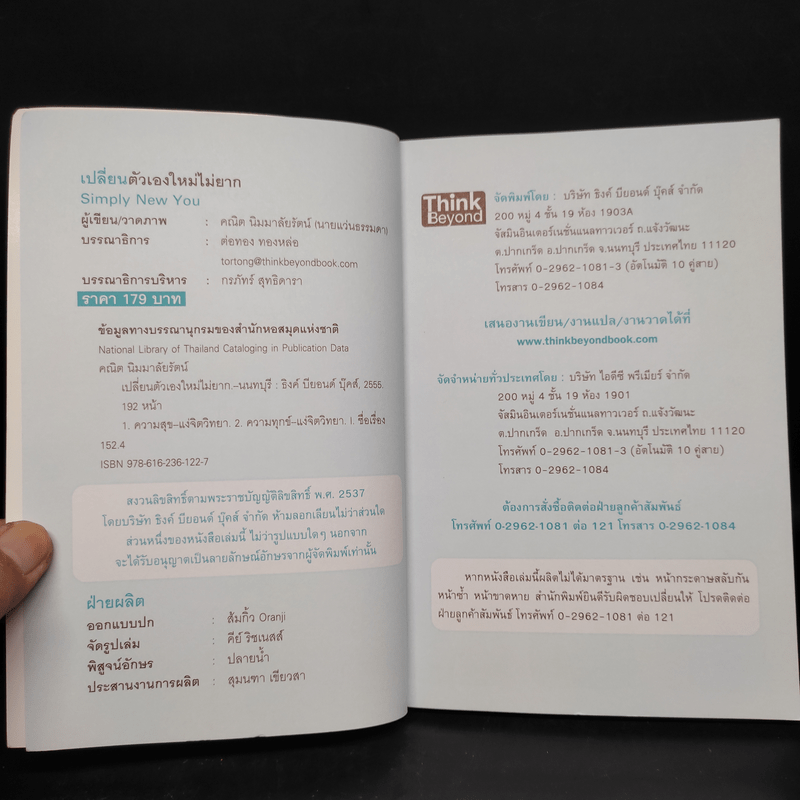 เปลี่ยนตัวเองใหม่ไม่ยาก
Simply New You
ผู้เขียน/วาดภาพ : คณิต นิมมาลัยรัตน์ (นายแว่นธรรมดา)
บรรณาธิการ : ต่อทอง ทองหล่อ
tortong@thinkbeyondbook.com
บรรณาธิการบริหาร : กรภัทร์ สุทธิดารา
ราคา 179 บาท
ข้อมูลทางบรรณานุกรมของสำนักหอสมุดแห่งชาติ
National Library of Thailand Cataloging in Publication Data
คณิต นิมมาลัยรัตน์
เปลี่ยนตัวเองใหม่ไม่ยาก.–นนทบุรี : ธิงค์ บียอนด์ บุ๊คส์, 2555.
192 หน้า
1. ความสุข–แง่จิตวิทยา. 2. ความทุกข์–แง่จิตวิทยา. I. ชื่อเรื่อง
152.4
ISBN 978-616-236-122-7
สงวนลิขสิทธิ์ตามพระราชบัญญัติลิขสิทธิ์ พ.ศ. 2537
โดยบริษัท ธิงค์ บียอนด์ บุ๊คส์ จำกัด ห้ามลอกเลียนไม่ว่าส่วนใด
ส่วนหนึ่งของหนังสือเล่มนี้ ไม่ว่ารูปแบบใดๆ นอกจาก
จะได้รับอนุญาตเป็นลายลักษณ์อักษรจากผู้จัดพิมพ์เท่านั้น
ฝ่ายผลิต
ออกแบบปก : ส้มกิ้ว Oranji
จัดรูปเล่ม : คีย์ ริชเนสส์
พิสูจน์อักษร : ปลายน้ำ
ประสานงานการผลิต : สุมนฑา เขียวสา
Think
Beyond
จัดพิมพ์โดย : บริษัท ธิงค์ บียอนด์ บุ๊คส์ จำกัด
200 หมู่ 4 ชั้น 19 ห้อง 1903A
จัสมินอินเตอร์เนชั่นแนลทาวเวอร์ ถ.แจ้งวัฒนะ
ต.ปากเกร็ด อ.ปากเกร็ด จ.นนทบุรี ประเทศไทย 11120
โทรศัพท์ 0-2962-1081-3 (อัตโนมัติ 10 คู่สาย)
โทรสาร 0-2962-1084
เสนองานเขียน/งานแปล/งานวาดได้ที่
www.thinkbeyondbook.com
จัดจำหน่ายทั่วประเทศโดย : บริษัท ไอดีซี พรีเมียร์ จำกัด
200 หมู่ 4 ชั้น 19 ห้อง 1901
จัสมินอินเตอร์เนชั่นแนลทาวเวอร์ ถ.แจ้งวัฒนะ
ต.ปากเกร็ด อ.ปากเกร็ด จ.นนทบุรี ประเทศไทย 11120
โทรศัพท์ 0-2962-1081-3 (อัตโนมัติ 10 คู่สาย)
โทรสาร 0-2962-1084
ต้องการสั่งซื้อติดต่อฝ่ายลูกค้าสัมพันธ์
โทรศัพท์ 0-2962-1081 ต่อ 121 โทรสาร 0-2962-1084
หากหนังสือเล่มนี้ผลิตไม่ได้มาตรฐาน เช่น หน้ากระดาษสลับกัน
หน้าซ้ำ หน้าขาดหาย สำนักพิมพ์ยินดีรับผิดชอบเปลี่ยนให้ โปรดติดต่อ
ฝ่ายลูกค้าสัมพันธ์ โทรศัพท์ 0-2962-1081 ต่อ 121